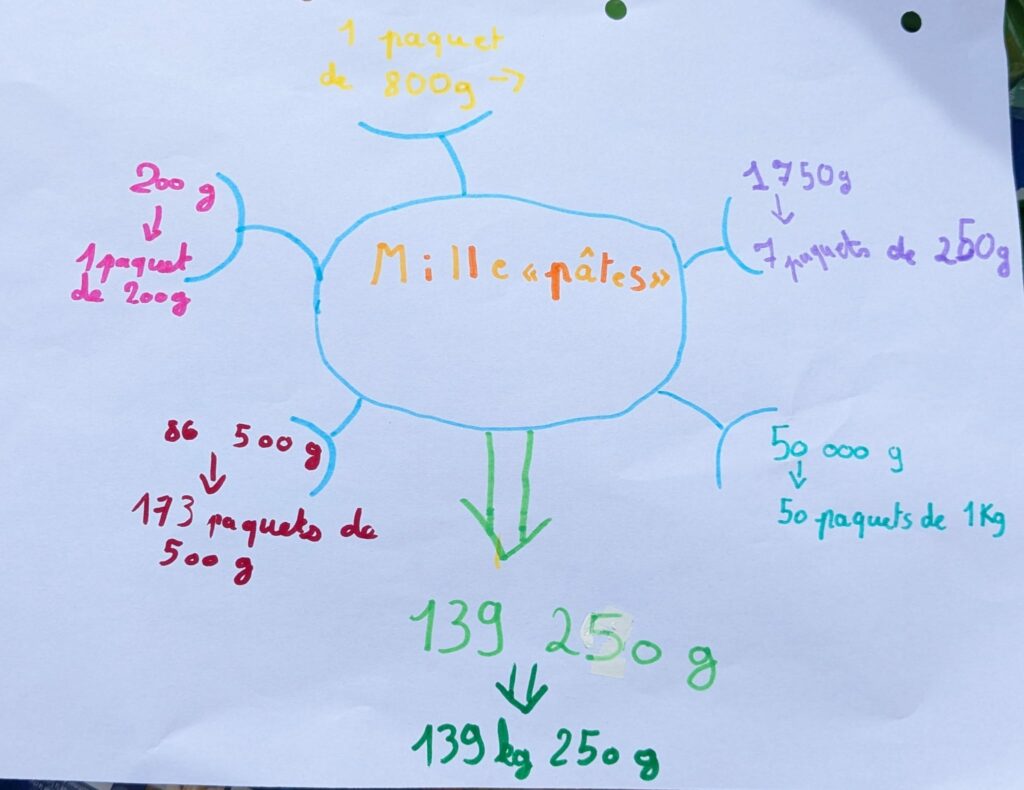 1 paquet
de 800g →
200 g
↓
1 paquet
de 200g
1750g
↓
7 paquets de 250g
Mille « pâtes »
86 500 g
↓
173 paquets de
500 g
50 000 g
↓
50 paquets de 1Kg
139 250 g
139 kg 250 g